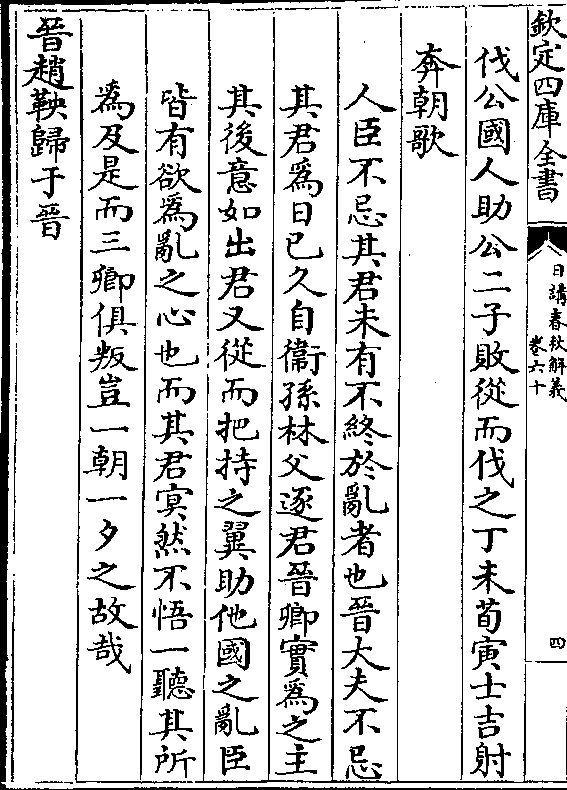 欽定四庫全書
日講春秋解義
卷六十
四
伐公國人助公二子敗從而伐之丁未荀寅士吉射
奔朝歌
人臣不忌其君未有不終於亂者也晉大夫不忌
其君為日已久自衞孫林父逐君晉卿實為之主
其後意如出君又從而把持之翼助他國之亂臣
皆有欲為亂之心也而其君㝠然不悟一聽其所
為及是而三卿俱叛豈一朝一夕之故哉
晉趙鞅歸于晉